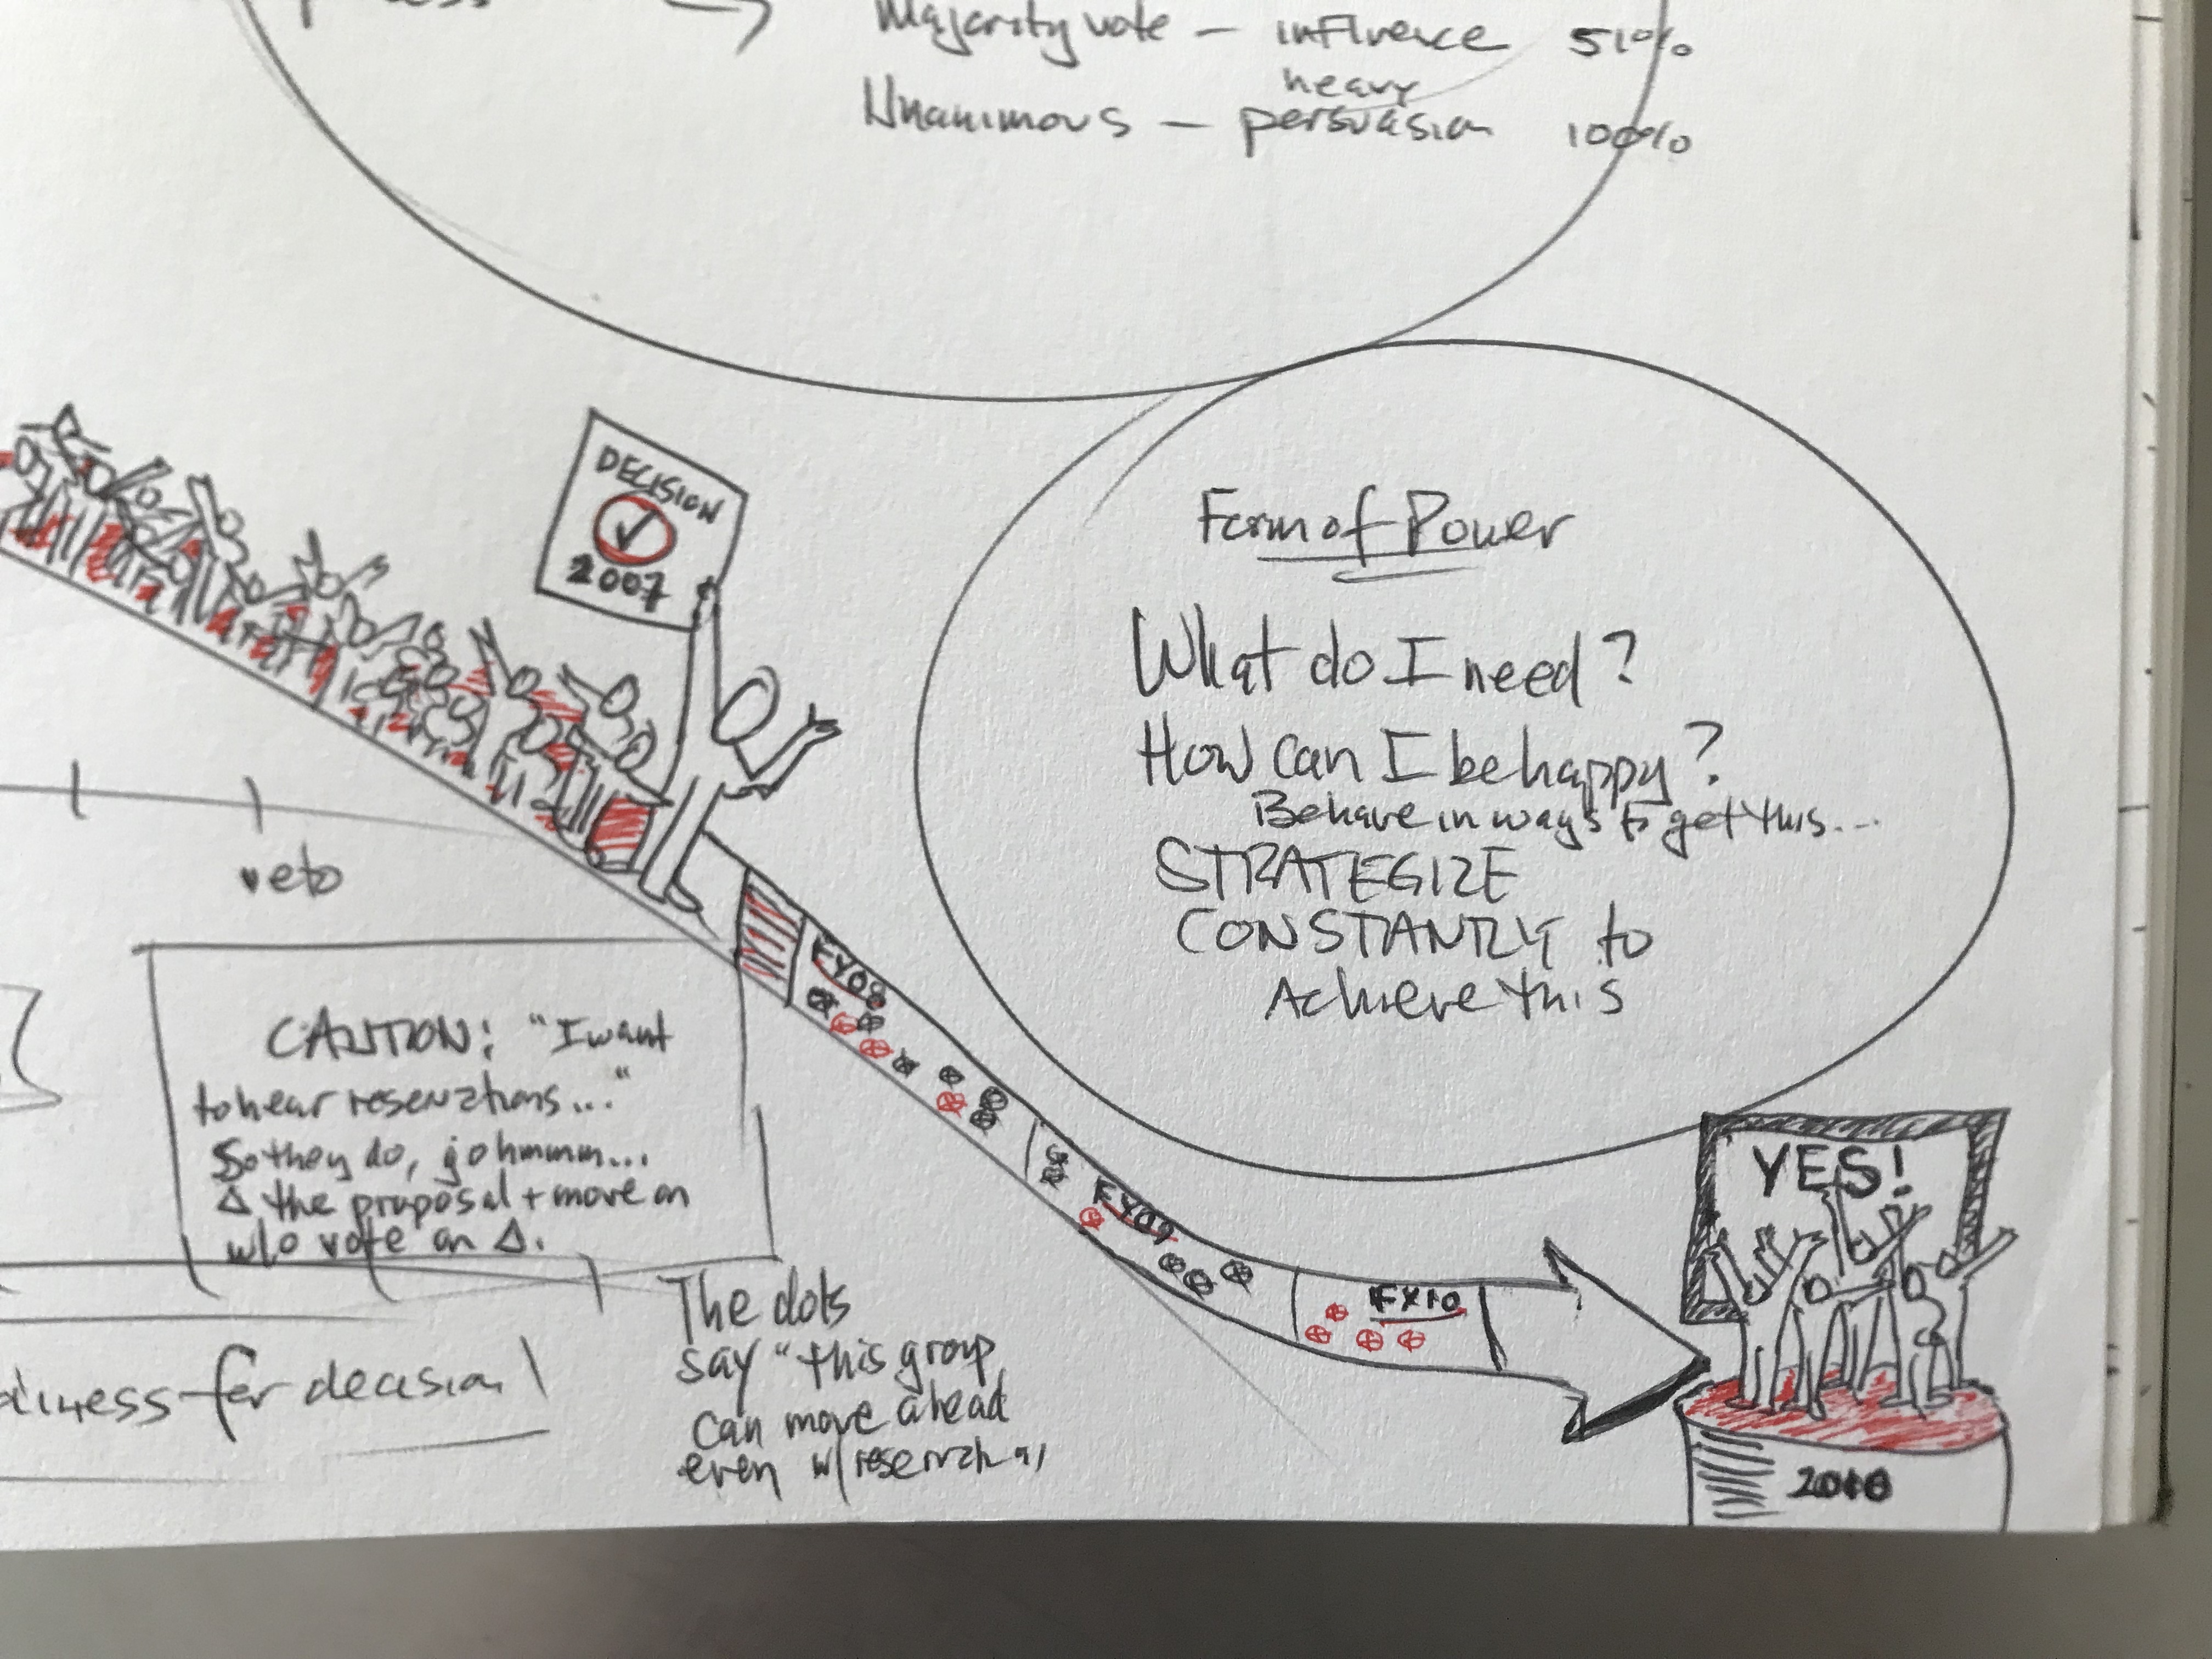 → Majority vote – influence 51%
heavy
Unanimous – persuasion 100%
DECISION
✓
2007
Form of Power
What do I need?
How can I be happy?
Behave in ways to get this...
STRATEGIZE
CONSTANTLY to
Achieve this
veto
CAUTION: "I want
to hear reservations..."
So they do, go hmmm...
Δ the proposal + move on
w/o vote on Δ.
FY08
FY09
FY10
YES!
2010
for decision!
The dots
say "this group
can move ahead
even w/